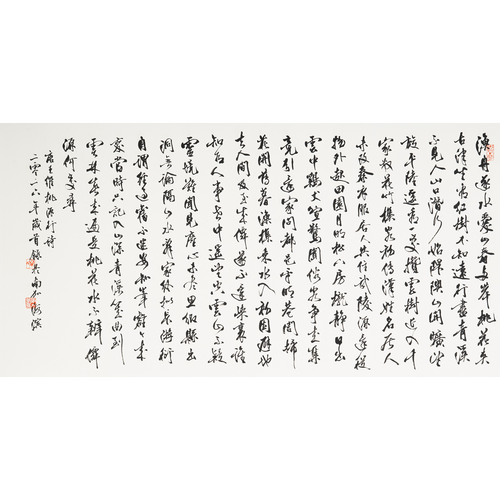 漁舟逐水愛山春兩岸桃花夾
古津坐看紅樹不知遠行盡青溪
不見人山口潛行始隈隩山開曠望
旋平陸遙看一處攢雲樹近入千
家散花竹樵客初傳漢姓名居人
未改秦衣服居人共住武陵源還從
物外起田園月明松下房櫳靜日出
雲中雞犬喧驚聞俗客爭來集
競引還家問都邑平明閭巷掃
花開薄暮漁樵乘水入初因避地
去人間及至成仙遂不還峽裏誰
知有人事世中遙望空雲山不疑
靈境難聞見塵心未盡思鄉縣出
洞無論隔山水辭家終擬長游衍
自謂經過舊不迷安知峰壑今來
變當時只記入山深青溪幾曲到
雲林春來遍是桃花水不辨仙
源何處尋
唐王維桃源行詩
二零一八年歲首